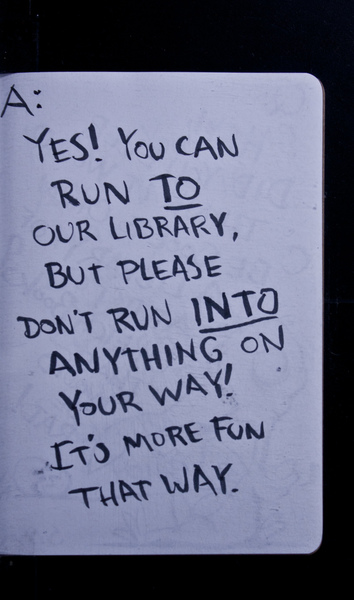 A:
YES! YOU CAN
RUN TO
OUR LIBRARY,
BUT PLEASE
DON'T RUN INTO
ANYTHING ON
YOUR WAY!
IT'S MORE FUN
THAT WAY.